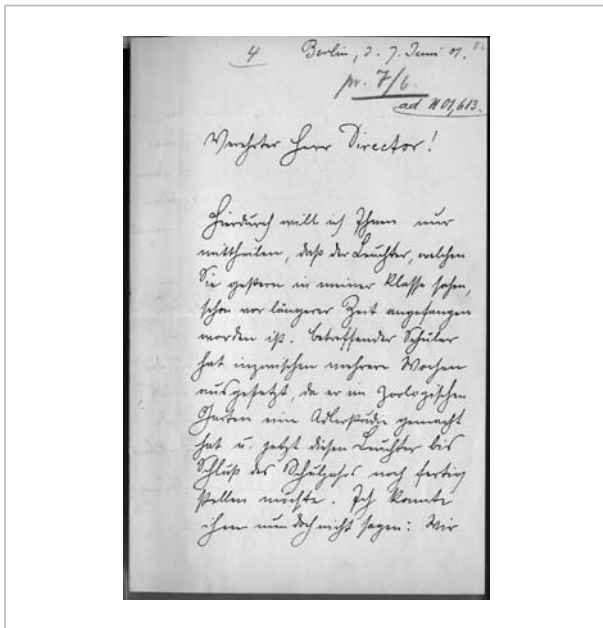 4 Berlin, d. 7. Juni 01. 82
pr. 7/6
ad N 01,613.
Verehrter Herr Director!
Hierdurch will ich Ihnen nur
mittheilen, daß der Leuchter, welchen
Sie gestern in meiner Klasse sahen,
schon vor längerer Zeit angefangen
worden ist. Betreffender Schüler
hat inzwischen mehrere Wochen
ausgesetzt, da er im Zoologischen
Garten eine Adlerstudie gemacht
hat u. jetzt diesen Leuchter bis
Schluß des Schuljahrs noch fertig
stellen möchte. Ich konnte
ihm nun doch nicht sagen: Wir